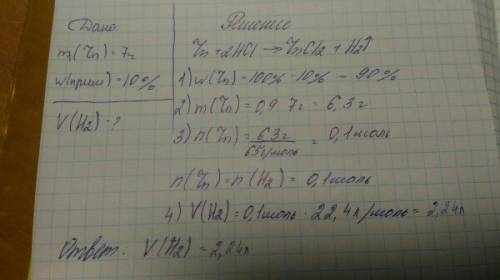 Дано
m₁(Zn) = 7г
w(прим) = 10%
V(H2) - ?
Решение
Zn + 2HCl → ZnCl2 + H2↑
1) w(Zn) = 100% - 10% = 90%
2) m(Zn) = 0,9 · 7г = 6,3г
3) n(Zn) = 6,3г / 65г/моль = 0,1моль
n(Zn) = n(H2) = 0,1моль
4) V(H2) = 0,1моль · 22,4л/моль = 2,24л
Ответ: V(H2) = 2,24л